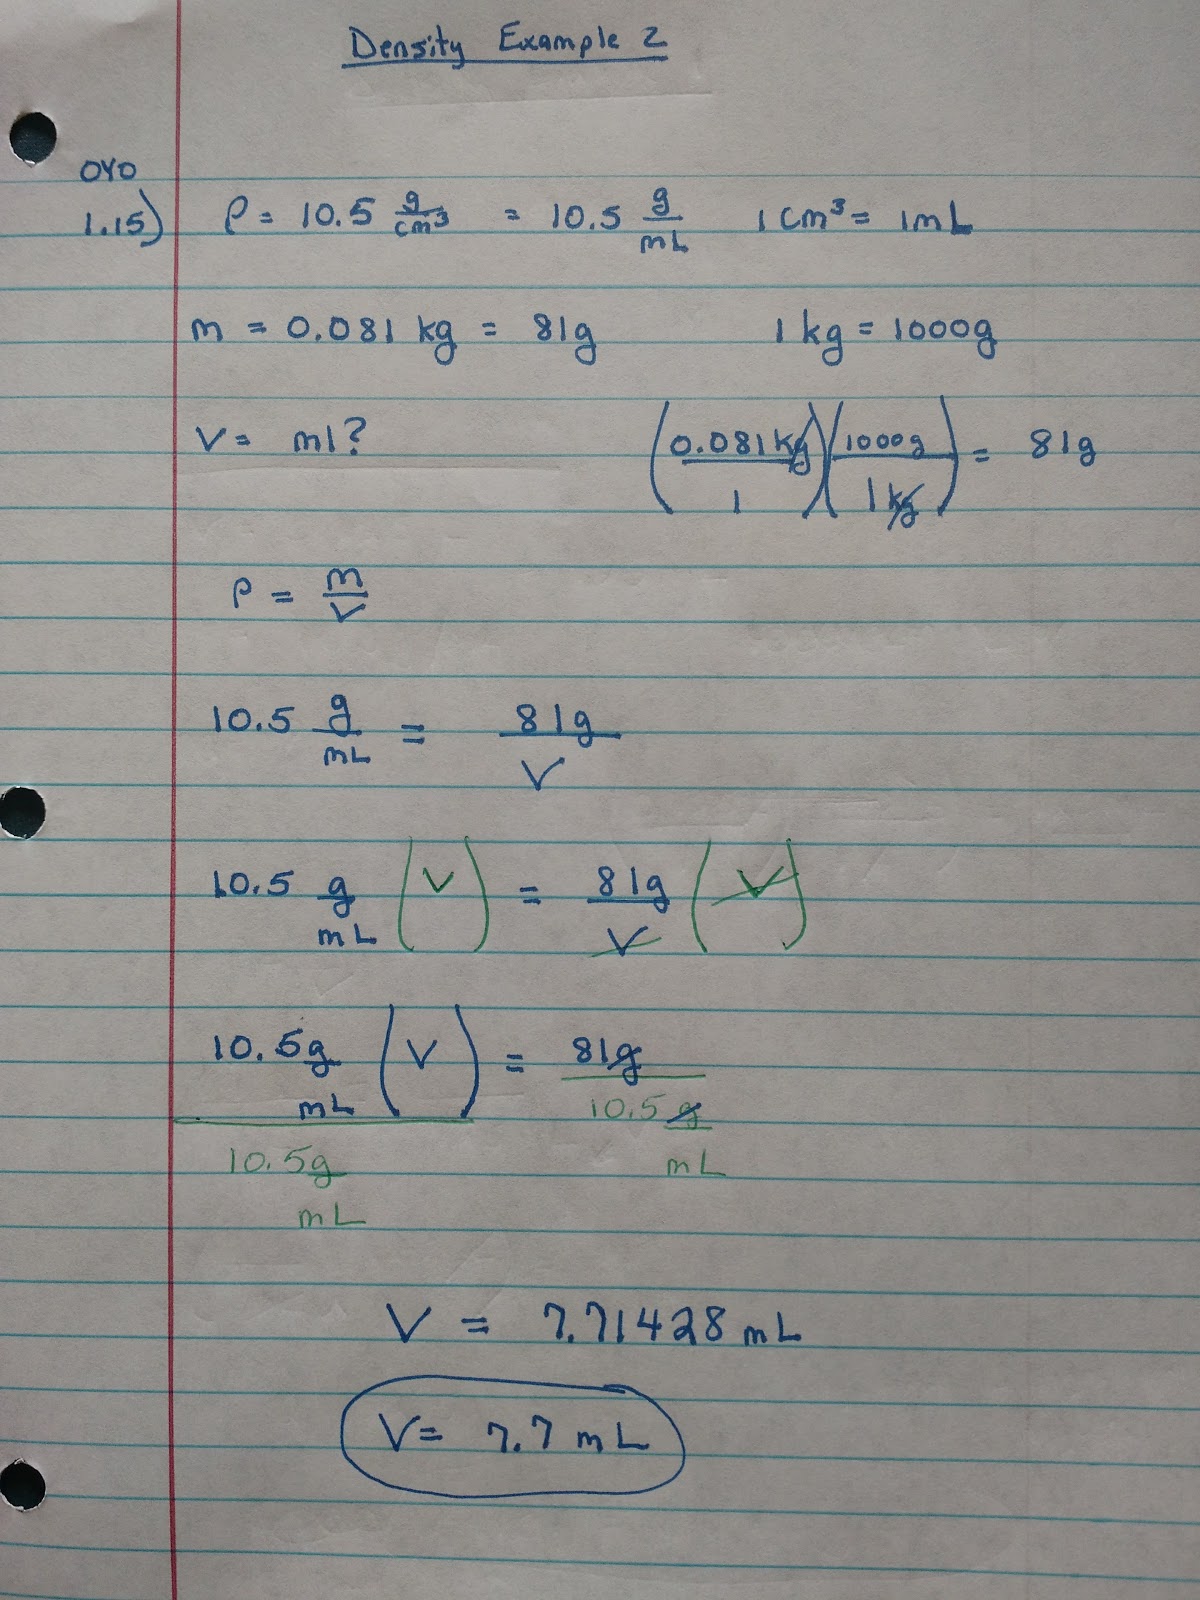 Density Example 2
OYO
1.15) ρ = 10.5 g/cm³ = 10.5 g/mL 1 cm³ = 1mL
m = 0.081 kg = 81g 1 kg = 1000g
V = ml? (0.081kg/1)(1000g/1kg) = 81g
ρ = m/V
10.5 g/mL = 81g/V
10.5 g/mL (V) = 81g/V (V)
10.5g/mL (V) = 81g
10.5g/mL 10.5g/mL
V = 7.71428 mL
V = 7.7 mL